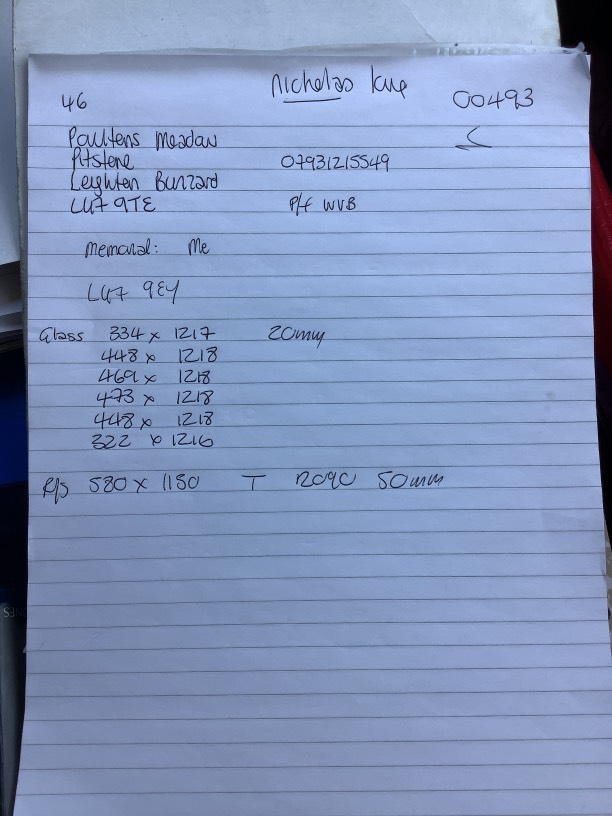 46 Nicholas 00493
Paultens Meadow
Pitstene 07931215549
Leighten Buzzard
LU7 9TE P/f WVB
Memorial: Me
LU7 9EY
Glass 334 x 1217 20mm
448 x 1218
469 x 1218
473 x 1218
448 x 1218
322 x 1216
580 x 1180 T 2090 50mm